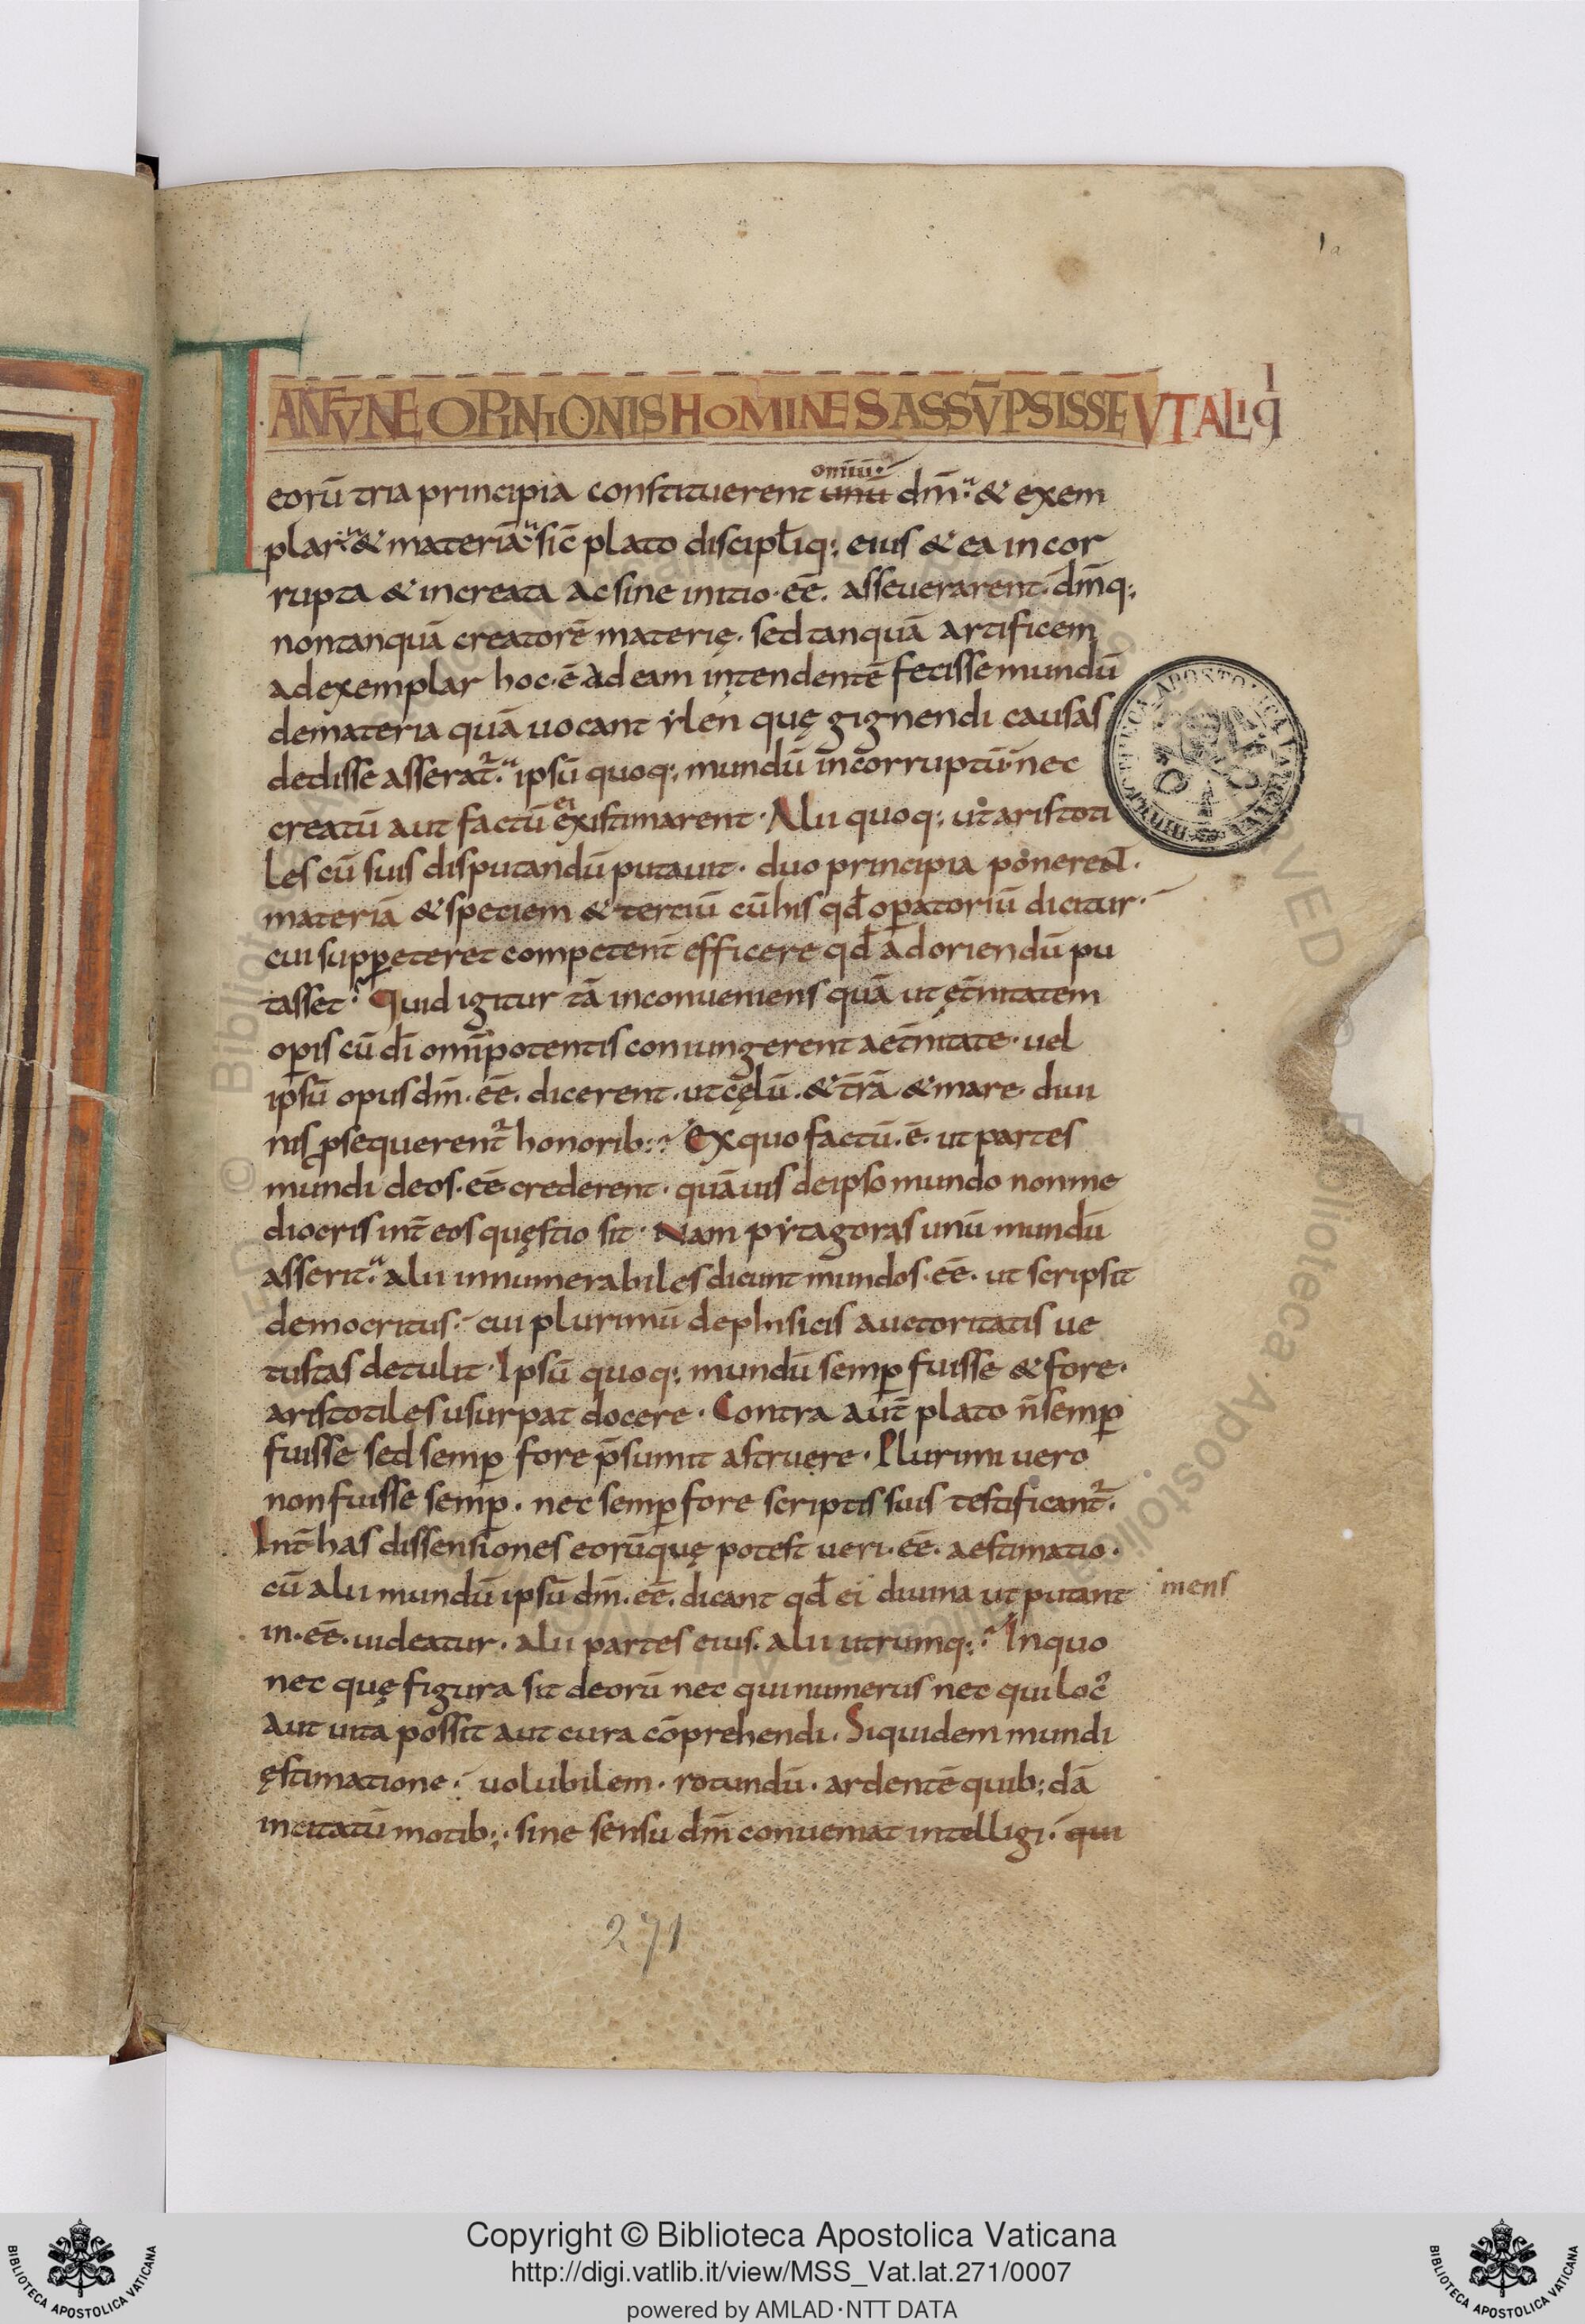 1a
TANTŪNE OPINIONIS HOMINES ASSŪPSISSE UT ALIQI
eorū tria principia constituerent unū omniū dm̄. & exem
plar. & materiā. sic̄ plato discipl̄iq; eius & ea incor
rupta & increata ac sine initio. eē. asseuerarent. dm̄q;
nontanquā creatorē materię. sed tanquā artificem
ad exemplar hoc. ē. ad eam intendentē fecisse mundū
demateria quā uocant ẏlen quę gignendi causas
dedisse asserat̄. ipsū quoq; mundū incorruptū. nec
creatū aut factū ei existimarent. Alii quoq; ut aristoti
les cū suis disputandū putauit. duo principia ponerent.
materiā & speciem & tertiū cū his qd̄ operatoriū dicitur.
cui suppeteret competent̄ efficere qd̄ adoriendū pu
tasset. Quid igitur tā inconueniens quā ut ęt̄nitatem
opis cū dī omīpotentis coniungerent aet̄nitate. uel
ipsū opus dm̄. eē. dicerent. ut cęlū. & t̄rā & mare. diui
nis ꝓsequerent̄ honorib; Ex quo factū. ē. ut partes
mundi deos. eē crederent. quāuis de ipso mundo nonme
diocris int̄ eos quęstio sit. Nam pẏtagoras unū mundū
asserit. alii innumerabiles dicunt mundos. eē. ut scripsit
democritus. cui plurimū dephisicis auctoritatis ue
tustas detulit. Ipsū quoq; mundū semꝑ fuisse & fore.
aristotiles usurpat docere. Contra aut̄ plato n̄ semꝑ
fuisse sed semꝑ fore p̄sumit astruere. Plurimi uero
nonfuisse semꝑ. nec semꝑ fore scriptis suis testificant̄.
Int̄ has dissensiones eorū quę potest ueri. eē. aestimatio.
cū alii mundū ipsū dm̄. eē. dicant qd̄ ei diuina ut putant mens
in. eē. uideatur. alii partes eius. alii utrumq; In quo
nec quę figura sit deorū nec qui numerus nec qui loc᾽
aut uita possit aut cura cōprehendi. Siquidem mundi
ęstimatione. uolubilem. rotundū. ardentē quib; dā
incitatū motib; sine sensu dm̄ conueniat intelligi. qui
271
Copyright © Biblioteca Apostolica Vaticana
http://digi.vatlib.it/view/MSS_Vat.lat.271/0007
powered by AMLAD·NTT DATA
BIBLIOTECA APOSTOLICA VATICANA
BIBLIOTECA APOSTOLICA VATICANA